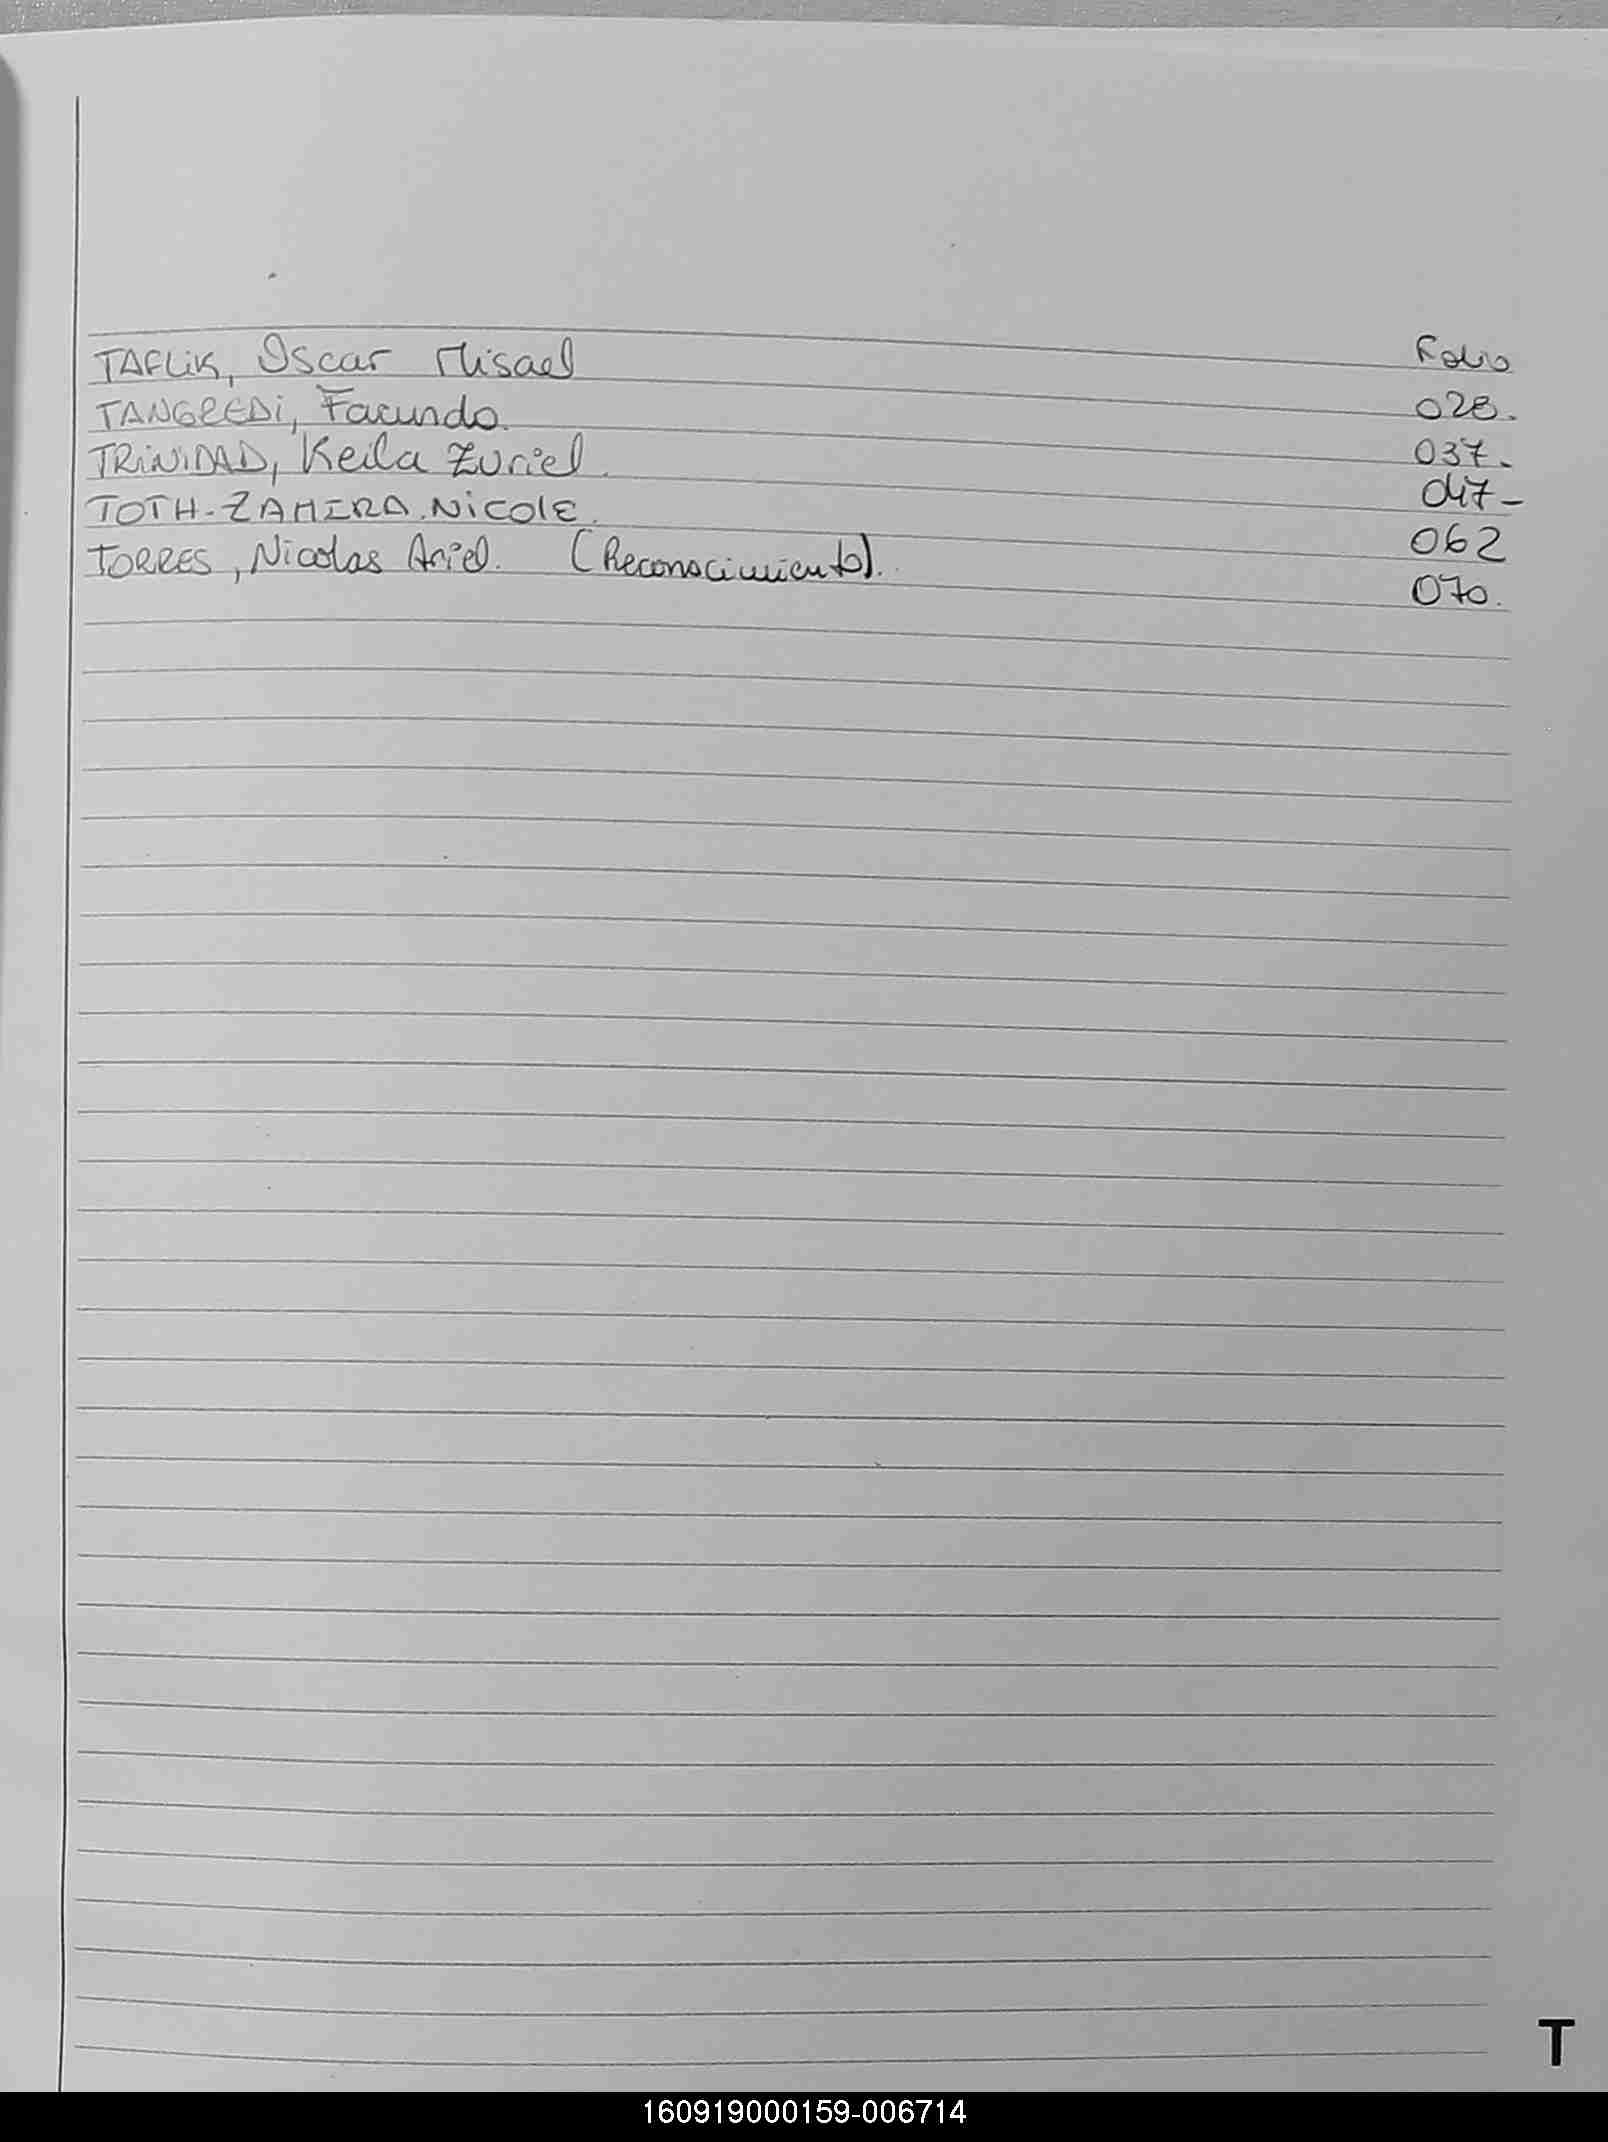 Folio
TAFLIK, Oscar Misael 028.
TANGREDI, Facundo. 037.
TRINIDAD, Keila Zuriel. 047-
TOTH-ZAHIRA.NICOLE. 062
TORRES, Nicolas Ariel. (Reconocimiento). 070.
T
160919000159-006714